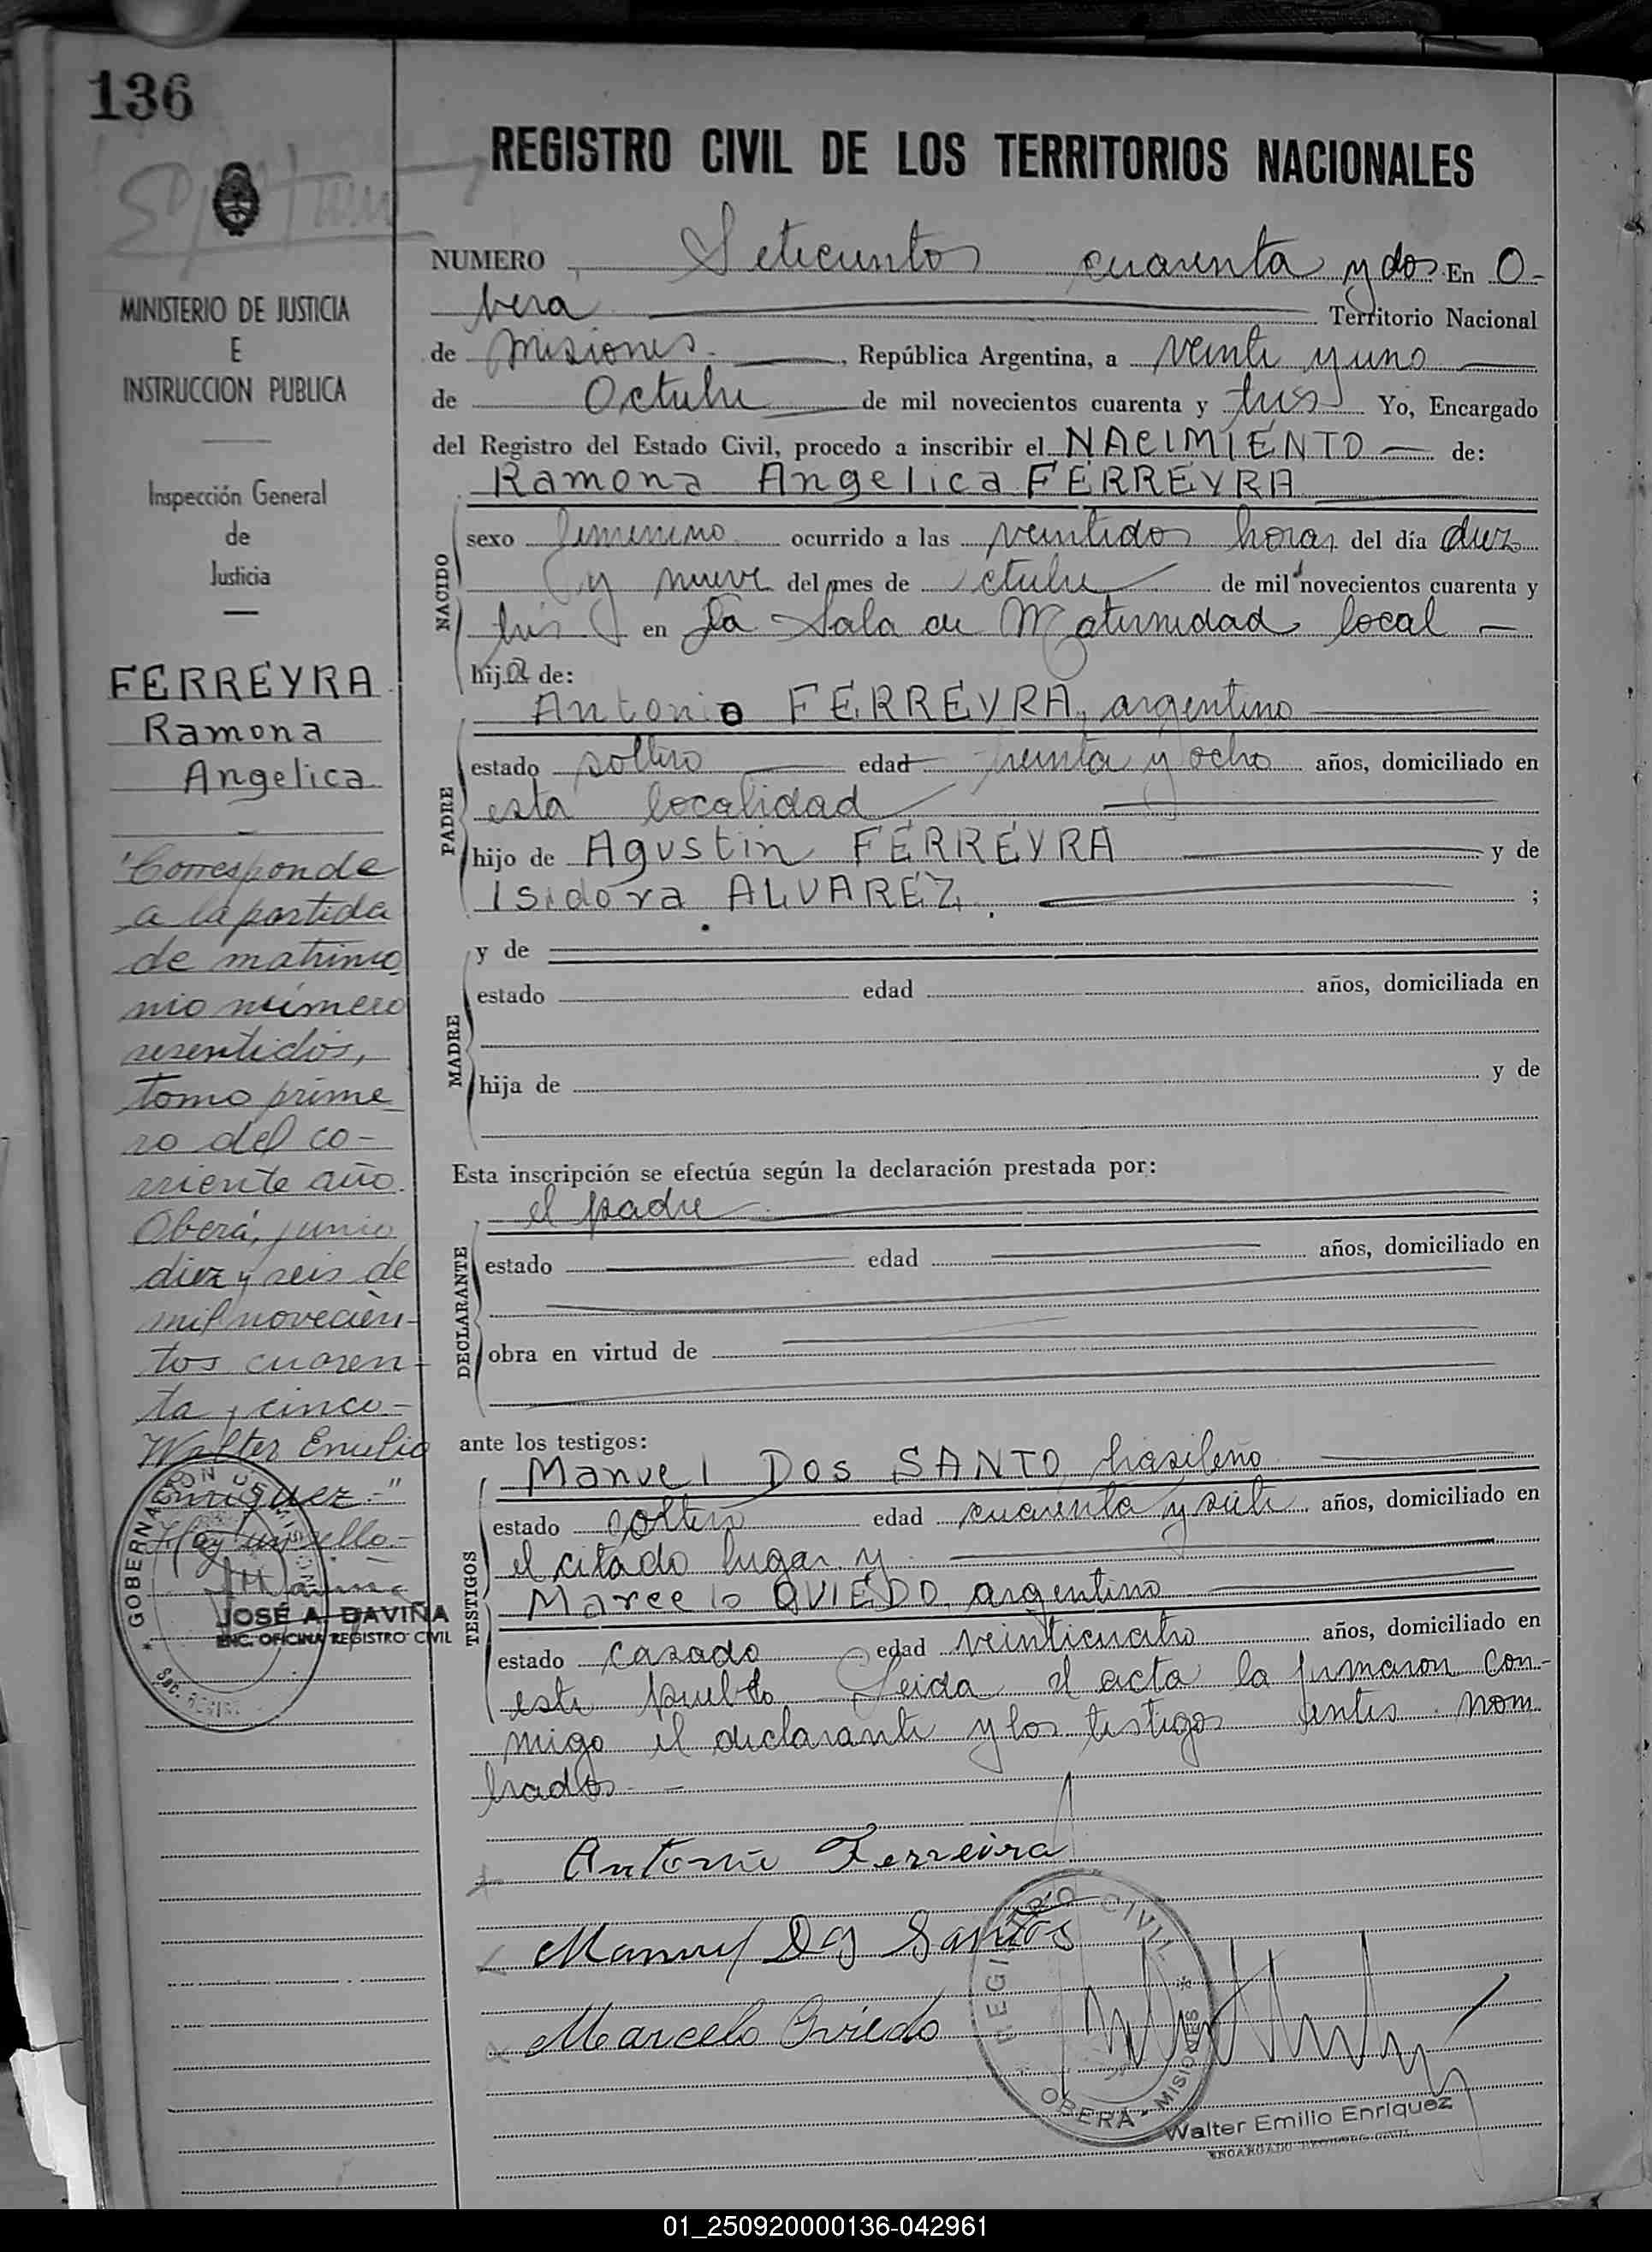 136
MINISTERIO DE JUSTICIA
E
INSTRUCCION PUBLICA
Inspección General
de
Justicia
FERREYRA
Ramona
Angelica
"Corresponde
a la partida
de matrimo
nio número
sesentidos,
tomo prime
ro del co-
rriente año.
Oberá, junio
diez y seis de
mil novecien-
tos cuaren-
ta y cinco-
Walter Emilio
Enriquez.-"
Hay un sello.-
JOSÉ A. DAVIÑA
ENC. OFICINA REGISTRO CIVIL
REGISTRO CIVIL DE LOS TERRITORIOS NACIONALES
NUMERO Setecientos cuarenta y dos En O-
bera Territorio Nacional
de Misiones. , República Argentina, a veinti y uno
de Octubre de mil novecientos cuarenta y tres Yo, Encargado
del Registro del Estado Civil, procedo a inscribir el NACIMIENTO de:
Ramona Angelica FERREYRA
NACIDO
sexo femenino ocurrido a las veintidos horas del día diez
y nueve del mes de octubre de mil novecientos cuarenta y
tres en la Sala de Maternidad local
hija de:
PADRE
Antonio FERREYRA, argentino
estado soltero edad treinta y ocho años, domiciliado en
esta localidad
hijo de Agustin FERREYRA y de
Isidora ALVAREZ. ;
MADRE
y de
estado edad años, domiciliada en
hija de y de
Esta inscripción se efectúa según la declaración prestada por:
DECLARANTE
el padre
estado edad años, domiciliado en
obra en virtud de
ante los testigos:
TESTIGOS
Manuel Dos SANTO, brasileño
estado soltero edad cuarenta y siete años, domiciliado en
el citado lugar y
Marcelo OVIEDO, argentino
estado casado edad veinticuatro años, domiciliado en
este pueblo. Leida el acta la firmaron con-
migo el declarante y los testigos antes nom
brados.
Antonio Ferreira
Manuel Dos Santos
Marcelo Oviedo
REGISTRO CIVIL
OBERA - MISIONES
Walter Emilio Enriquez
ENCARGADO REGISTRO CIVIL
01_250920000136-042961